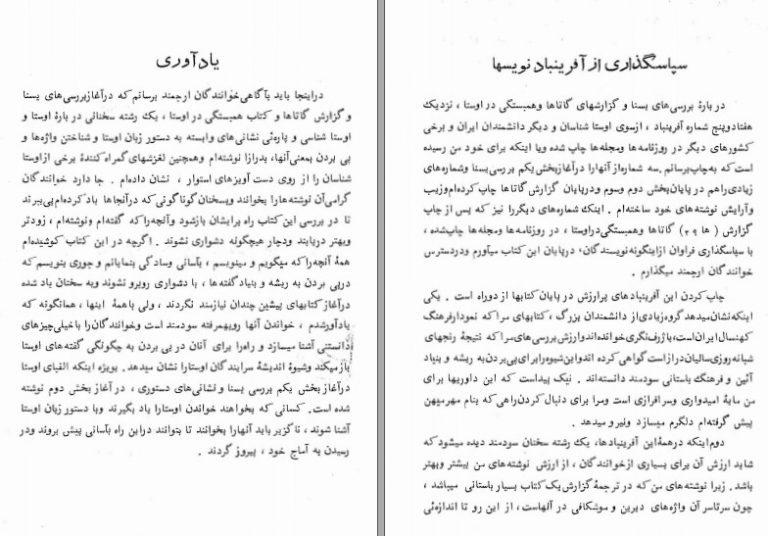 سپاسگذاری از آفرینباد نویسها
در بارهٔ بررسی‌های یسنا و گزارشهای گاتاها و همبستگی در اوستا ، نزدیک
هفتاد و پنج شماره آفرینباد ، از سوی اوستا شناسان و دیگر دانشمندان ایران و برخی
کشورهای دیگر در روزنامه‌ها و مجله‌ها چاپ شده و یا اینکه برای خود من رسیده
است که به چاپ برسانم . سه شماره از آنها را در آغاز بخش یکم بررسی یسنا و شماره‌های
زیادی را هم در پایان بخش دوم و سوم و در پایان گزارش گاتاها چاپ کرده‌ام و زیب
و آرایش نوشته‌های خود ساخته‌ام . اینک شماره‌های دیگر را نیز که پس از چاپ
گزارش ( ها ) گاتاها و همبستگی در اوستا ، در روزنامه‌ها و مجله‌ها چاپ شده ،
با سپاسگذاری فراوان از اینگونه نویسندگان ، در پایان این کتاب میآورم و در دسترس
خوانندگان ارجمند میگذارم .
چاپ کردن این آفرینبادهای پر ارزش در پایان کتابها از دو راه است . یکی
اینکه نشان میدهد گروه زیادی از دانشمندان بزرگ ، کتابهای مرا که نمودار فرهنگ
کهنسال ایران است ، با ژرف نگری خوانده‌اند و ارزش بررسی‌های مرا که نتیجهٔ رنجهای
شبانه روزی سالیان دراز است گواهی کرده‌اند و این شیوه را برای پی بردن به ریشه و بنیاد
آئین و فرهنگ باستانی سودمند دانسته‌اند . نیک پیداست که این داوریها برای
من مایهٔ امیدواری و سرافرازی است و مرا برای دنبال کردن راهی که بنام مهر میهن
پیش گرفته‌ام دلگرم میسازد و نیرو میدهد .
دوم اینکه در همهٔ این آفرینبادها ، یک رشته سخنان سودمند دیده میشود که
شاید ارزش آن برای بسیاری از خوانندگان ، از ارزش نوشته‌های من بیشتر و بهتر
باشد . زیرا نوشته‌های من که در ترجمهٔ گزارش یک کتاب بسیار باستانی میباشد ،
چون سرتاسر آن واژه‌های دیرین و موشکافی در آنهاست ، از این رو تا اندازه‌ئی
یادآوری
در اینجا باید بآگاهی خوانندگان ارجمند برسانم که در آغاز بررسی‌های یسنا
و گزارش گاتاها و کتاب همبستگی در اوستا ، یک رشته سخنانی در بارهٔ اوستا و
اوستا شناسی و پاره‌ئی نشانی‌های وابسته به دستور زبان اوستا و شناختن واژه‌ها و
پی بردن بمعنی آنها ، بدرازا نوشته‌ام و همچنین لغزشهای گمراه کنندهٔ برخی از اوستا
شناسان را از روی دست آویزهای استوار ، نشان داده‌ام . جا دارد خوانندگان
گرامی آن نوشته‌ها را بخوانند و بسخنان گوناگونی که در آنجاها یاد کرده‌ام پی ببرند
تا در بررسی این کتاب راه برایشان باز شود و آنچه را که گفته‌ام و نوشته‌ام ، زودتر
و بهتر دریابند و دچار هیچگونه دشواری نشوند . اگرچه در این کتاب کوشیده‌ام
همهٔ آنچه را که میگویم و مینویسم ، بآسانی و سادگی بنمایانم و جوری بنویسم که
در پی بردن به ریشه و بنیاد گفته‌ها ، با دشواری روبرو نشوند و به سخنان یاد شده
در آغاز کتابهای پیشین چندان نیازمند نگردند ، ولی با همهٔ اینها ، همانگونه که
یادآور شدم ، خواندن آنها رویهمرفته سودمند است و خوانندگان را با خیلی چیزهای
دانستنی آشنا میسازد و راه را برای آنان در پی بردن به چگونگی گفته‌های اوستا
باز میکند و شیوهٔ اندیشهٔ سرایندگان اوستا را نشان میدهد . بویژه اینکه الفبای اوستا
در آغاز بخش یکم بررسی یسنا و نشانی‌های دستوری ، در آغاز بخش دوم نوشته
شده است . کسانی که بخواهند خواندن اوستا را یاد بگیرند و با دستور زبان اوستا
آشنا شوند ، ناگزیر باید آنها را بخوانند تا بتوانند در این راه بآسانی پیش بروند و در
رسیدن به آماج خود ، پیروز گردند .